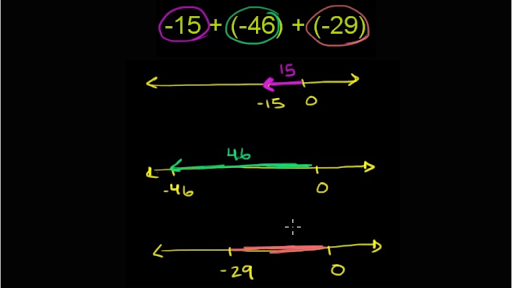 -15 + (-46) + (-29)
15
-15 0
46
-46 0
-29 0